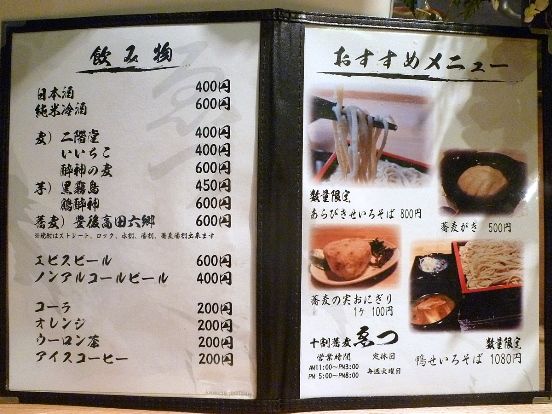 飲み物
日本酒 400円
純米冷酒 600円
麦）二階堂 400円
いいちこ 400円
酔神の麦 600円
芋）黒霧島 450円
鶴酔神 600円
蕎麦）豊後高田六郷 600円
※焼酎はストレート、ロック、水割、湯割、蕎麦湯割出来ます
ヱビスビール 600円
ノンアルコールビール 400円
コーラ 200円
オレンジ 200円
ウーロン茶 200円
アイスコーヒー 200円
おすすめメニュー
数量限定
あらびきせいろそば 800円
蕎麦がき 500円
蕎麦の実おにぎり
1ケ 100円
十割蕎麦 ゑつ
営業時間 定休日
AM11:00～PM3:00
PM 5:00～PM8:00 毎週火曜日
数量限定
鴨せいろそば 1080円